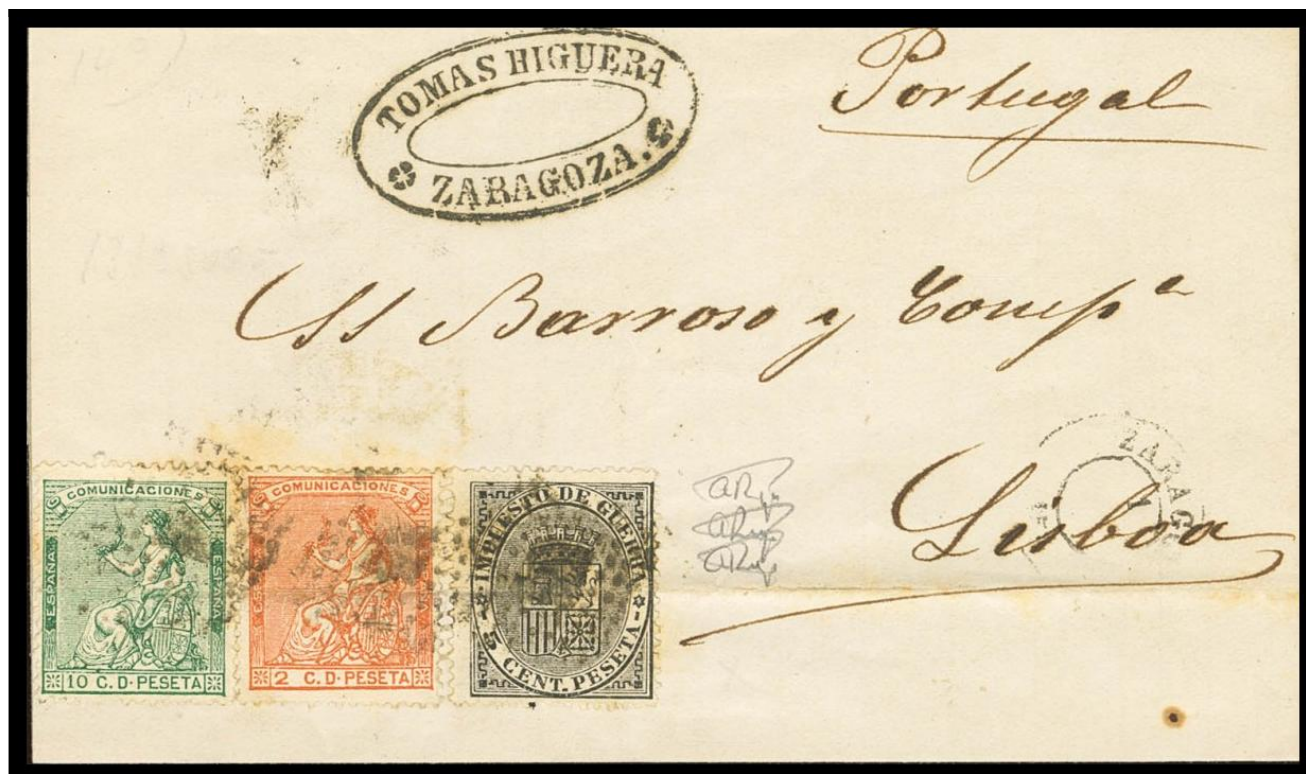 TOMAS HIGUERA
ZARAGOZA.
Portugal
SS Barroso y Compª
Lisboa
ZARAG
COMUNICACIONES
ESPAÑA
ESPAÑA
10 C. D. PESETA
COMUNICACIONES
ESPAÑA
ESPAÑA
2 C. D. PESETA
IMPUESTO DE GUERRA
5 CENT. PESETA